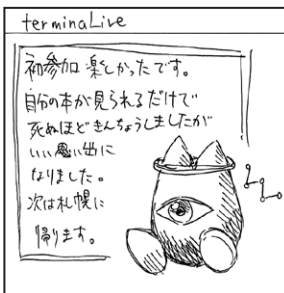 terminaLive
初参加 楽しかったです。
自分の本が見られるだけで
死ぬほどきんちょうしましたが
いい思い出に
なりました。
次は札幌に
帰ります。